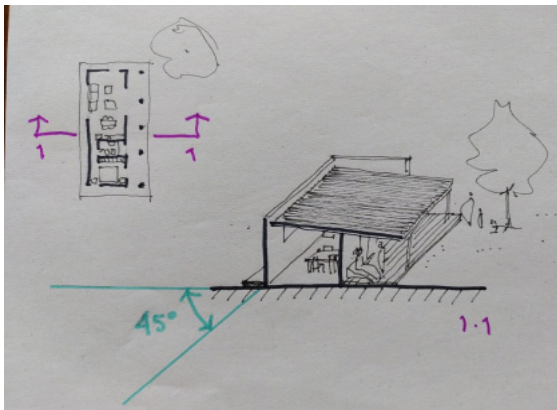 1 1
45°
1.1